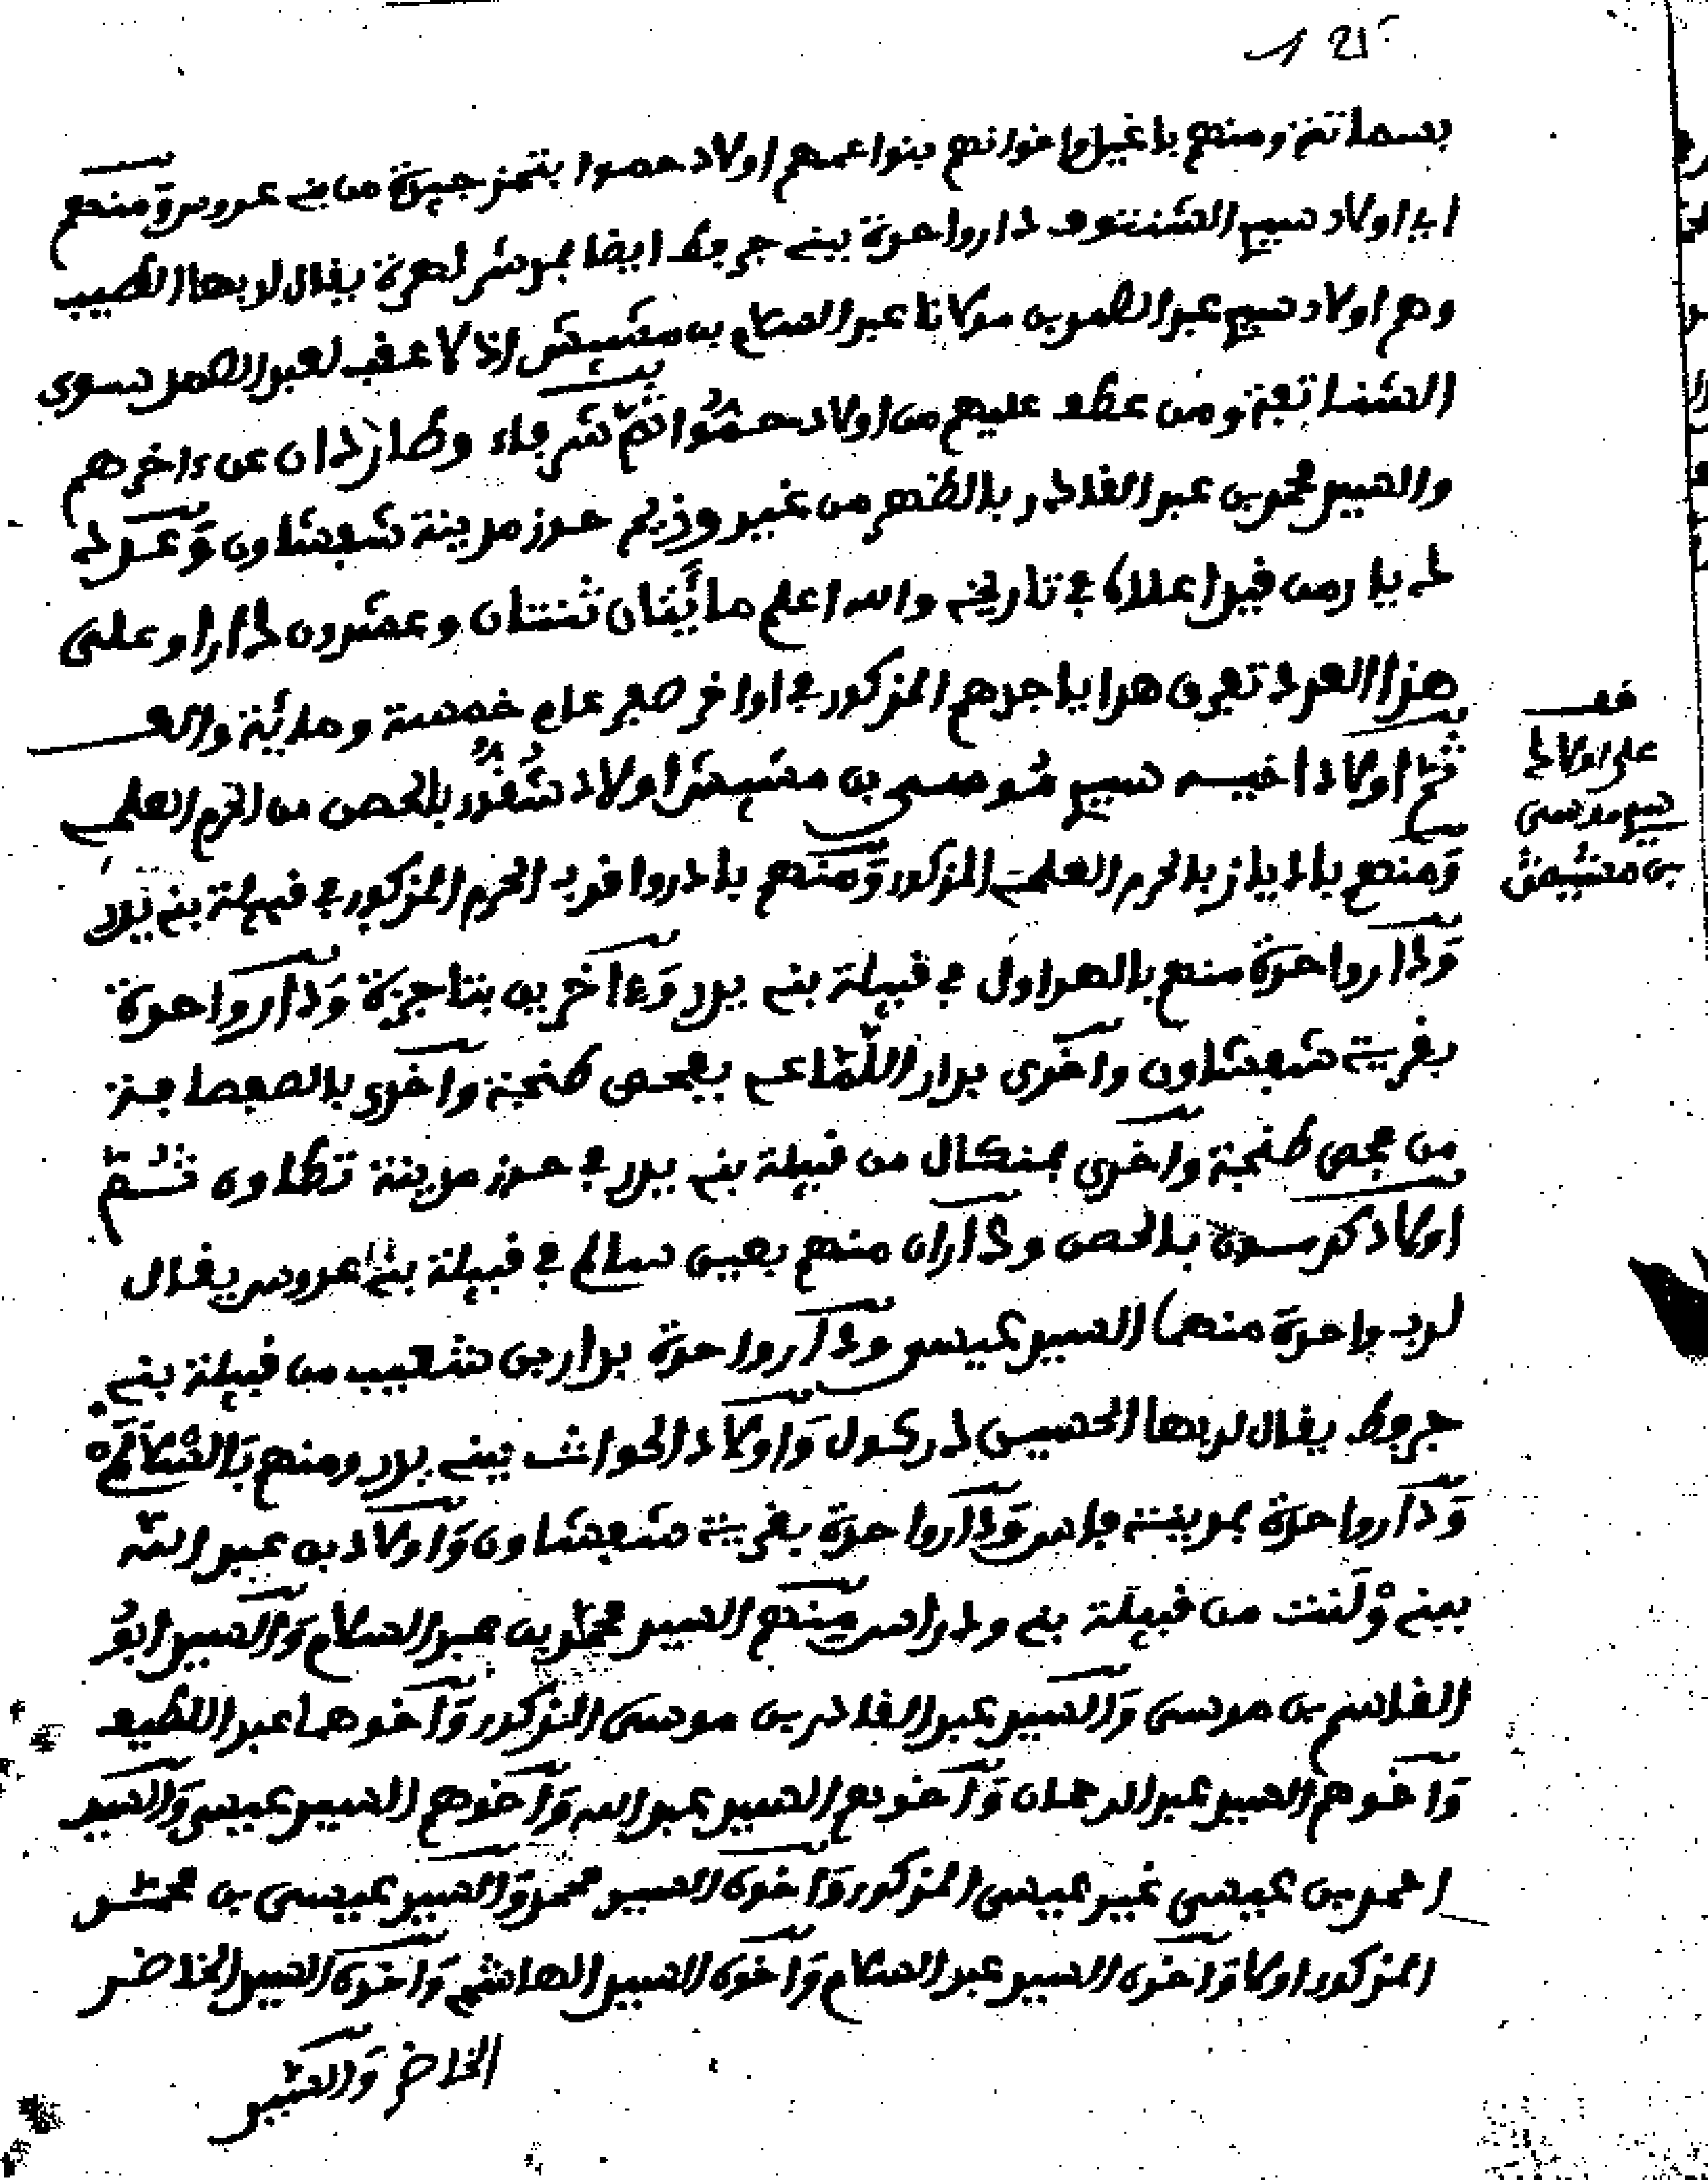 بسماتة ومنهم باغيل واخوانهم بنوا عمهم اولاد حصوا بتمزجيرة من بني عروس ومنهم
اولاد سيدي الشنتوف دار واحدة ببني جرفط ايضا بمدشر لهرة يقال لربها الطيب
وهم اولاد سيدي عبد الصمد بن مولانا عبد السلام بن مشيش اذ لا عقب لعبد الصمد سوى
الشناتفة ومن عطف عليهم من اولاد حمُّوا ثمّ شرفاء وطازدان عن ءاخرهم
والسيد محمد بن عبد القادر بالظهر من غير وزيم حوز مدينة شفشاون وَعدد
ديارمن قيد اعلاه في تاريخه والله اعلم مائتان ثنتان وعشرون دارا وعلى
هذا العدد تفرق هدايا جدهم المذكور في اواخر صفر عام خمسة ومائة والف
ثمّ اولاد اخيه سيدي مُوسى بن مشيش اولاد شُقُور بالحصن من الحرم العلمي
وَمنهم بادياز بالحرم العلمي المذكور وَمنهم بادروا قرب الحرم المذكور في قبيلة بني يدر
وَدار واحدة منهم بالهراول في قبيلة بني يدر وَءاخرين بتاجزة وَدار واحدة
بقرية شفشاون واخرى بدار اللّمّاعي بفحص طنجة وَاخرى بالصفصافة
من فحص طنجة وَاخرى بمنكال من قبيلة بني يدر في حوز مدينة تطاون ثُمّ
اولاد كرسون بالحصن وداران منهم بعين سالم في قبيلة بني عروس يقال
لرب واحدة منهما السيد عيسى وَدار واحدة بدار بن شعيب من قبيلة بني
جرفط يقال لربها الحسين دركول وَاولاد الحواث ببني يدر ومنهم بَالسْلَالَمْ
وَدار واحدة بمدينة فاس وَدار واحدة بقرية شفشاون وَاولاد بن عبد الله
ببني وْلَنت من قبيلة بني ودراس منهم السيد محمد بن عبد السلام وَالسيد ابوُ
القاسم بن موسى وَالسيد عبد القادر بن موسى المذكور وَاخوهما عبد اللطيف
وَاخوهم السيد عبد الرحمان وَاخوهم السيد عبد الله وَاخوهم السيد عيسى وَالسيد
احمد بن عيسى غير عيسى المذكور وَاخوه السيد محمد وَالسيد عيسى بن محمد
المذكور اولا وَاخوه السيد عبد السلام وَاخوه السيد الهاشمي وَاخوه السيد الخاضر
الخاضر وَالسيد
قف
على اولاد
سيدي موسى
بن مشيش